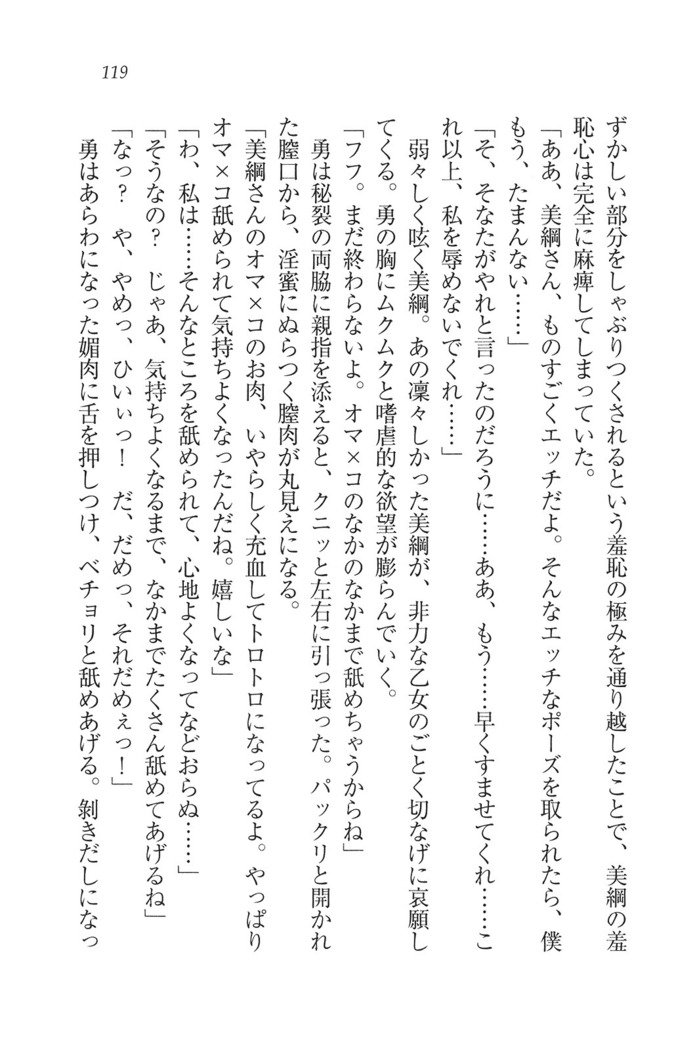 119
ずかしい部分をしゃぶりつくされるという羞恥の極みを通り越したことで、美綱の羞
恥心は完全に麻痺してしまっていた。
「ああ、美綱さん、ものすごくエッチだよ。そんなエッチなポーズを取られたら、僕
もう、たまんない……」
「そ、そなたがやれと言ったのだろうに……ああ、もう……早くすませてくれ……こ
れ以上、私を辱めないでくれ……」
弱々しく呟く美綱。あの凜々しかった美綱が、非力な乙女のごとく切なげに哀願し
てくる。勇の胸にムクムクと嗜虐的な欲望が膨らんでいく。
「フフ。まだ終わらないよ。オマ×コのなかのなかまで舐めちゃうからね」
勇は秘裂の両脇に親指を添えると、クニッと左右に引っ張った。パックリと開かれ
た膣口から、淫蜜にぬらつく膣肉が丸見えになる。
「美綱さんのオマ×コのお肉、いやらしく充血してトロトロになってるよ。やっぱり
オマ×コ舐められて気持ちよくなったんだね。嬉しいな」
「わ、私は……そんなところを舐められて、心地よくなってなどおらぬ……」
「そうなの？　じゃあ、気持ちよくなるまで、なかまでたくさん舐めてあげるね」
「なっ？　や、やめっ、ひいぃっ！　だ、だめっ、それだめぇっ！」
勇はあらわになった媚肉に舌を押しつけ、ベチョリと舐めあげる。剝きだしになっ